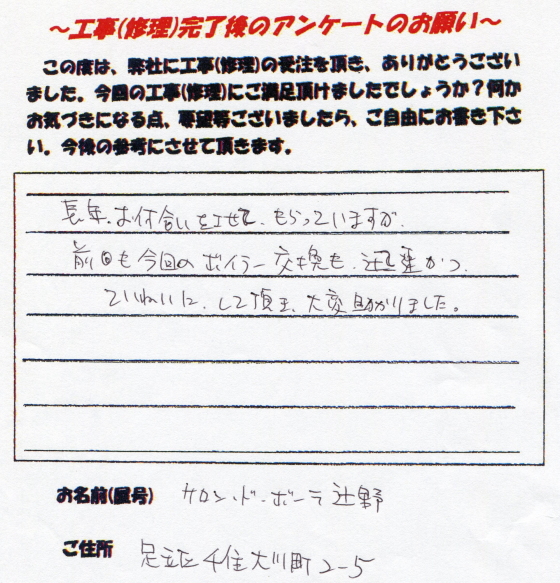 ～工事(修理)完了後のアンケートのお願い～
この度は、弊社に工事(修理)の受注を頂き、ありがとうござい
ました。今回の工事(修理)にご満足頂けましたでしょうか？何か
お気づきになる点、要望等ございましたら、ご自由にお書き下さ
い。今後の参考にさせて頂きます。
長年、お付合いをさせて、もらっていますが、
前回も今回のボイラー交換も、迅速かつ、
ていねいに、して頂き、大変助かりました。
お名前(屋号) サロン・ド・ボーテ辻野
ご住所 足立区千住大川町2-5